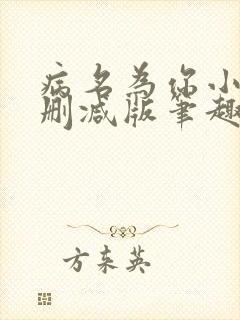 病名为你小
删减版笔趣
方东英